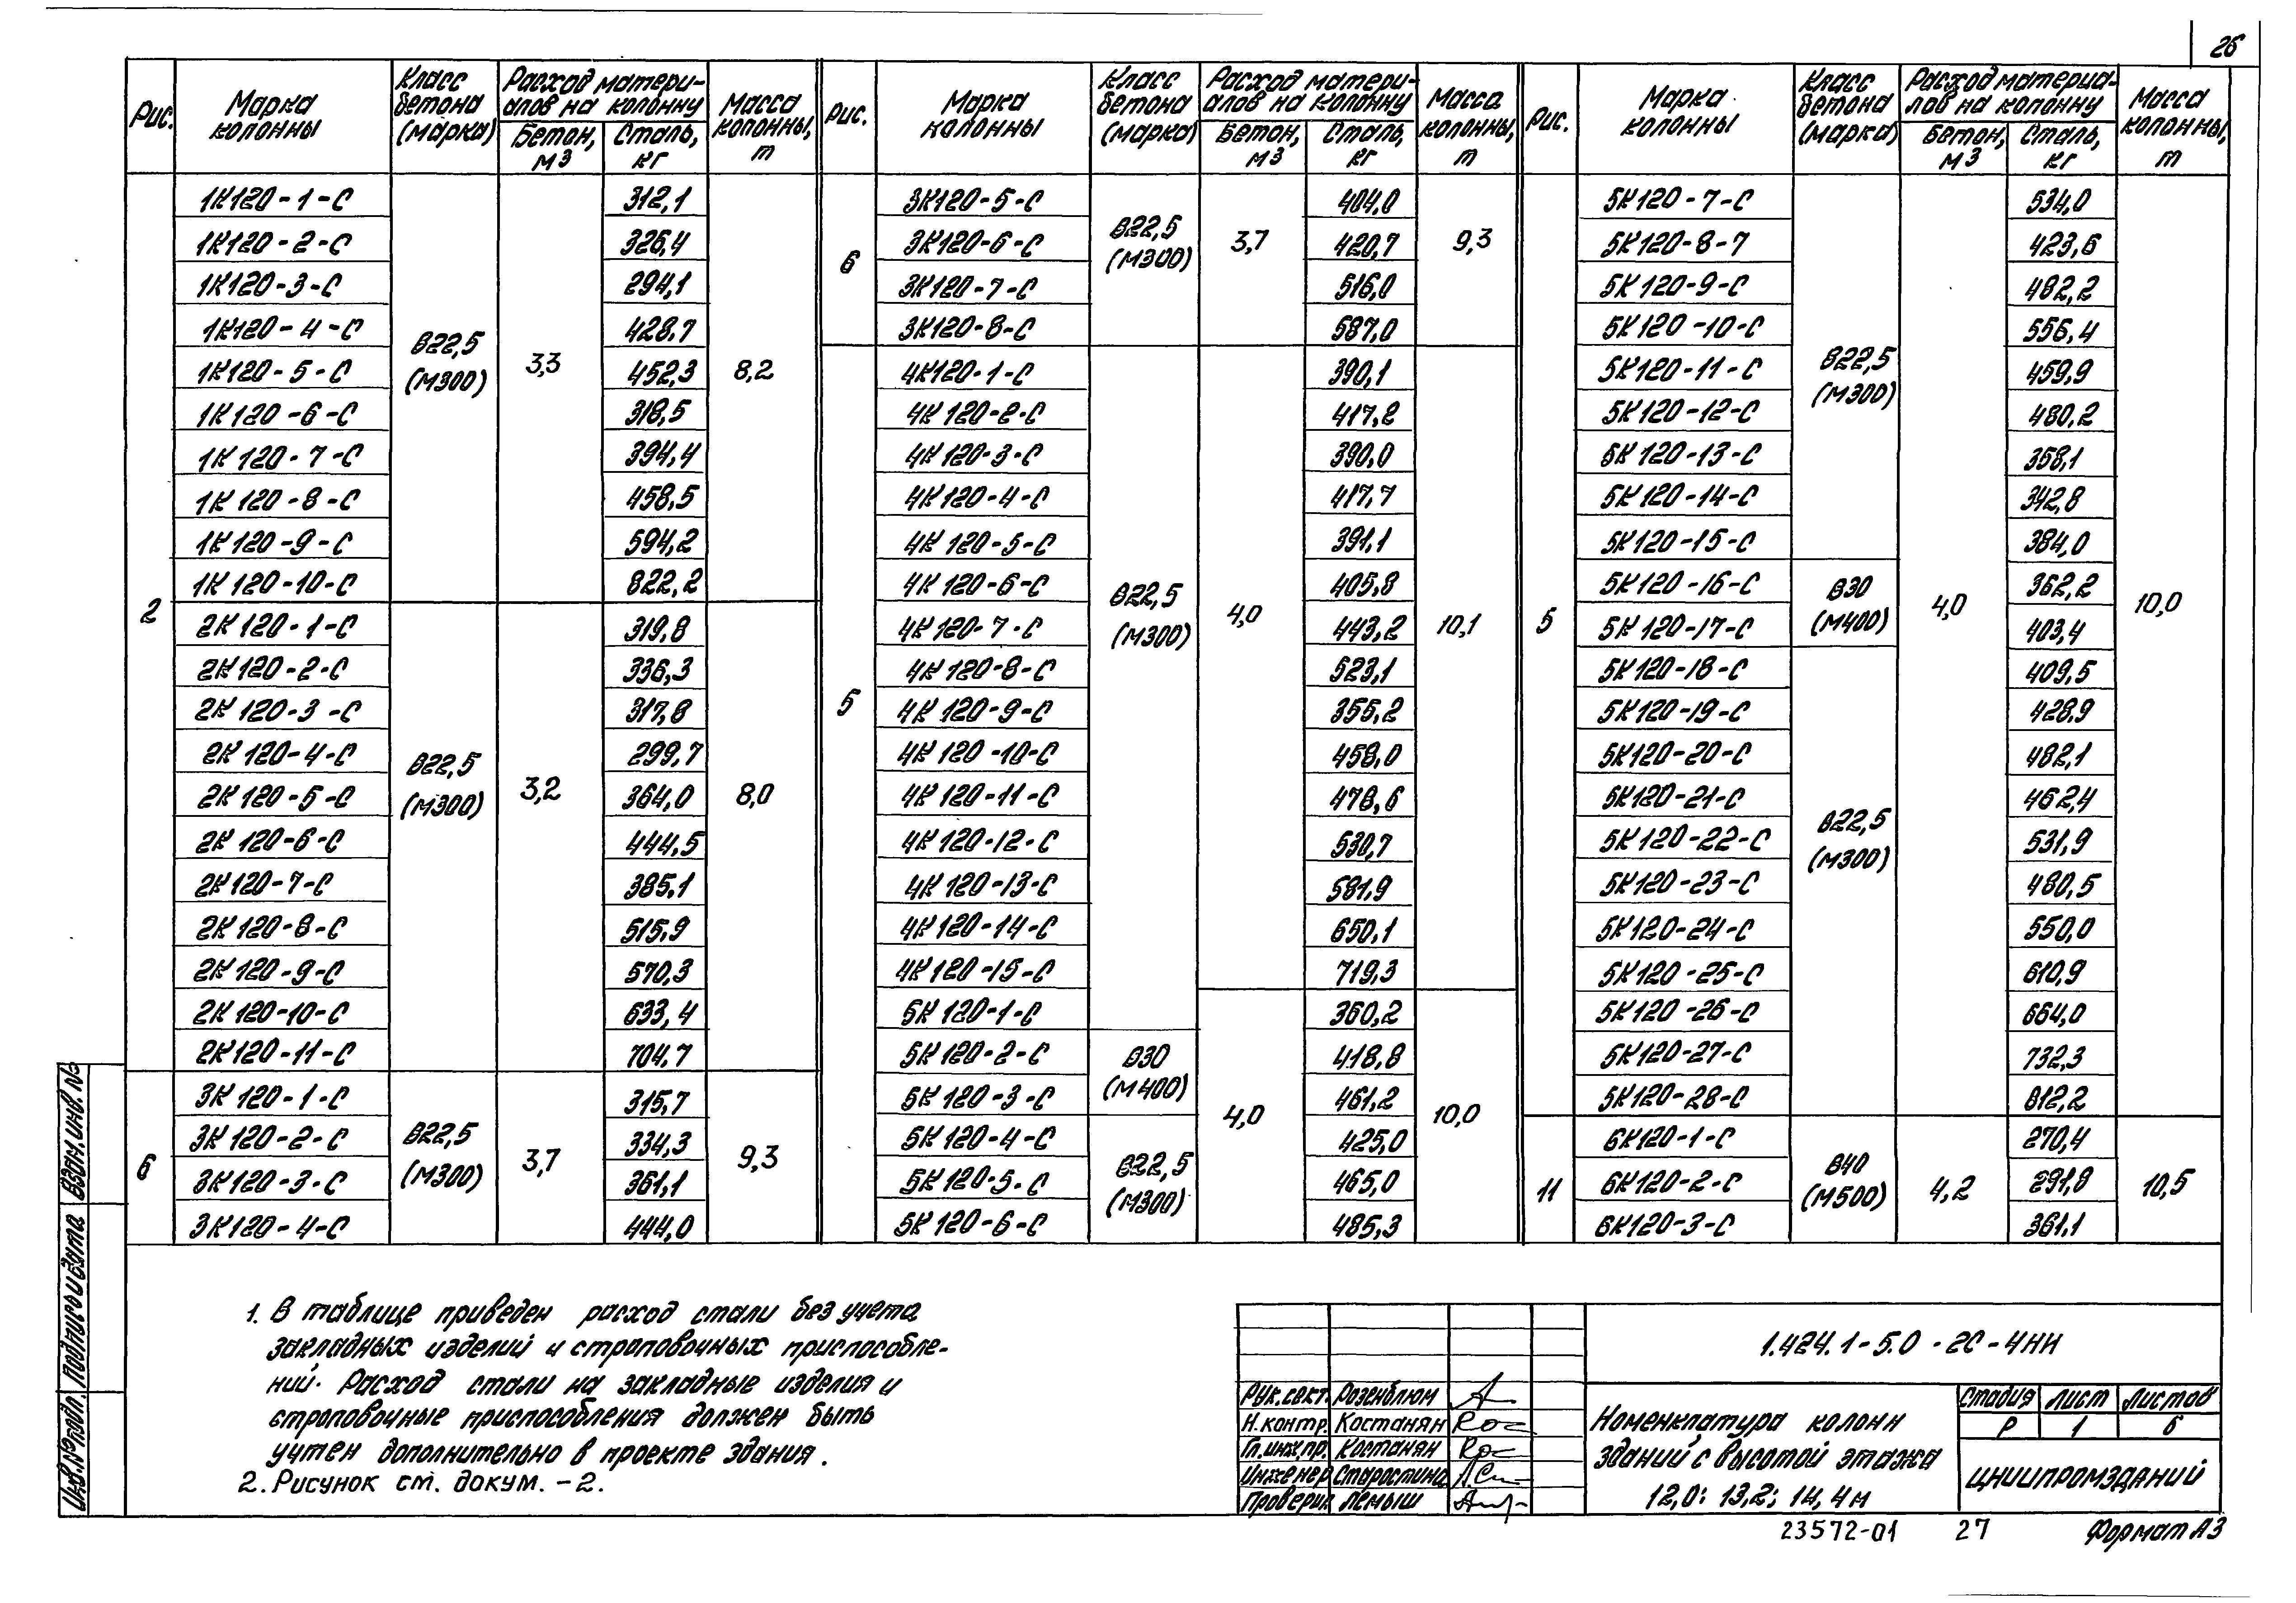 26
Рис. Марка колонны Класс бетона (марка) Расход материалов на колонну Бетон, м3 Сталь, кг Масса колонны, т
2 1К120-1-С В22,5 (М300) 3,3 312,1 8,2
1К120-2-С 326,4
1К120-3-С 294,1
1К120-4-С 428,7
1К120-5-С 452,3
1К120-6-С 318,5
1К120-7-С 394,4
1К120-8-С 458,5
1К120-9-С 594,2
1К120-10-С 822,2
2К120-1-С В22,5 (М300) 3,2 319,8 8,0
2К120-2-С 336,3
2К120-3-С 317,8
2К120-4-С 299,7
2К120-5-С 364,0
2К120-6-С 444,5
2К120-7-С 385,1
2К120-8-С 515,9
2К120-9-С 570,3
2К120-10-С 633,4
2К120-11-С 704,7
6 3К120-1-С В22,5 (М300) 3,7 315,7 9,3
3К120-2-С 334,3
3К120-3-С 361,1
3К120-4-С 444,0
Рис. Марка колонны Класс бетона (марка) Расход материалов на колонну Бетон, м3 Сталь, кг Масса колонны, т
6 3К120-5-С В22,5 (М300) 3,7 404,0 9,3
3К120-6-С 420,7
3К120-7-С 516,0
3К120-8-С 587,0
5 4К120-1-С В22,5 (М300) 4,0 390,1 10,1
4К120-2-С 417,2
4К120-3-С 390,0
4К120-4-С 417,7
4К120-5-С 391,1
4К120-6-С 405,8
4К120-7-С 443,2
4К120-8-С 523,1
4К120-9-С 355,2
4К120-10-С 458,0
4К120-11-С 478,6
4К120-12-С 530,7
4К120-13-С 581,9
4К120-14-С 650,1
4К120-15-С 719,3
5К120-1-С 4,0 360,2 10,0
5К120-2-С В30 (М400) 418,8
5К120-3-С 461,2
5К120-4-С В22,5 (М300) 425,0
5К120-5-С 465,0
5К120-6-С 485,3
Рис. Марка колонны Класс бетона (марка) Расход материалов на колонну Бетон, м3 Сталь, кг Масса колонны, т
5 5К120-7-С В22,5 (М300) 4,0 534,0 10,0
5К120-8-7 423,6
5К120-9-С 482,2
5К120-10-С 556,4
5К120-11-С 459,9
5К120-12-С 480,2
5К120-13-С 358,1
5К120-14-С 342,8
5К120-15-С 384,0
5К120-16-С В30 (М400) 362,2
5К120-17-С 403,4
5К120-18-С В22,5 (М300) 409,5
5К120-19-С 428,9
5К120-20-С 482,1
5К120-21-С 462,4
5К120-22-С 531,9
5К120-23-С 480,5
5К120-24-С 550,0
5К120-25-С 610,9
5К120-26-С 664,0
5К120-27-С 732,3
5К120-28-С 812,2
11 6К120-1-С В40 (М500) 4,2 270,4 10,5
6К120-2-С 291,8
6К120-3-С 361,1
1. В таблице приведен расход стали без учета
закладных изделий и строповочных приспособле-
ний. Расход стали на закладные изделия и
строповочные приспособления должен быть
учтен дополнительно в проекте здания.
2. Рисунок ст. докум. -2.
1.424.1-5.0-2С-4НИ
Рук.сект. Розенблюм
Н.контр. Костанян
Гл.инж.пр. Костанян
Инженер Старостина
Проверил Лемыш
Номенклатура колонн
зданий с высотой этажа
12,0; 13,2; 14,4м
Стадия Лист Листов
Р 1 6
ЦНИИПРОМЗДАНИЙ
23572-01 27 Формат А3
Инв.№подл. Подпись и дата Взам.инв.№